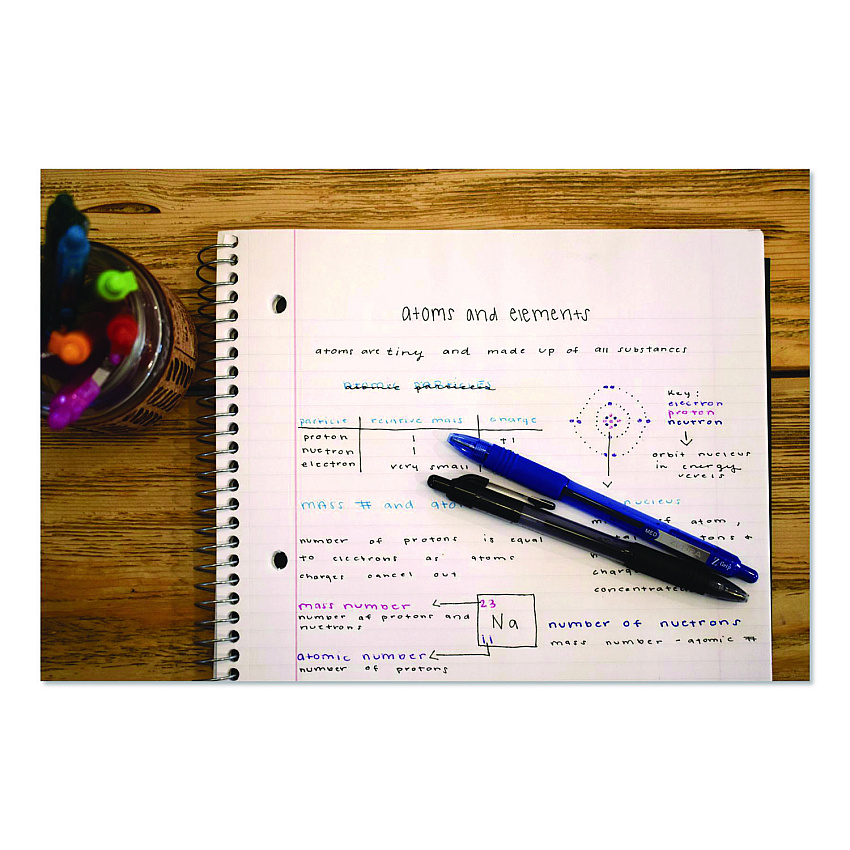 atoms and elements
atoms are tiny and made up of all substances
atomic particles
particle relative mass charge
proton 1 +1
nuetron 1
electron very small
Key:
electron
proton
neutron
orbit nucleus
in energy
verels
mass # and
nucleus
number of protons is equal
to electrons as atoms
charges cancel out
of atom,
concentrated
mass number
number of protons and
nuetrons
23
Na
11
atomic number
number of protons
number of nuetrons
mass number - atomic #
MED
Z Grip